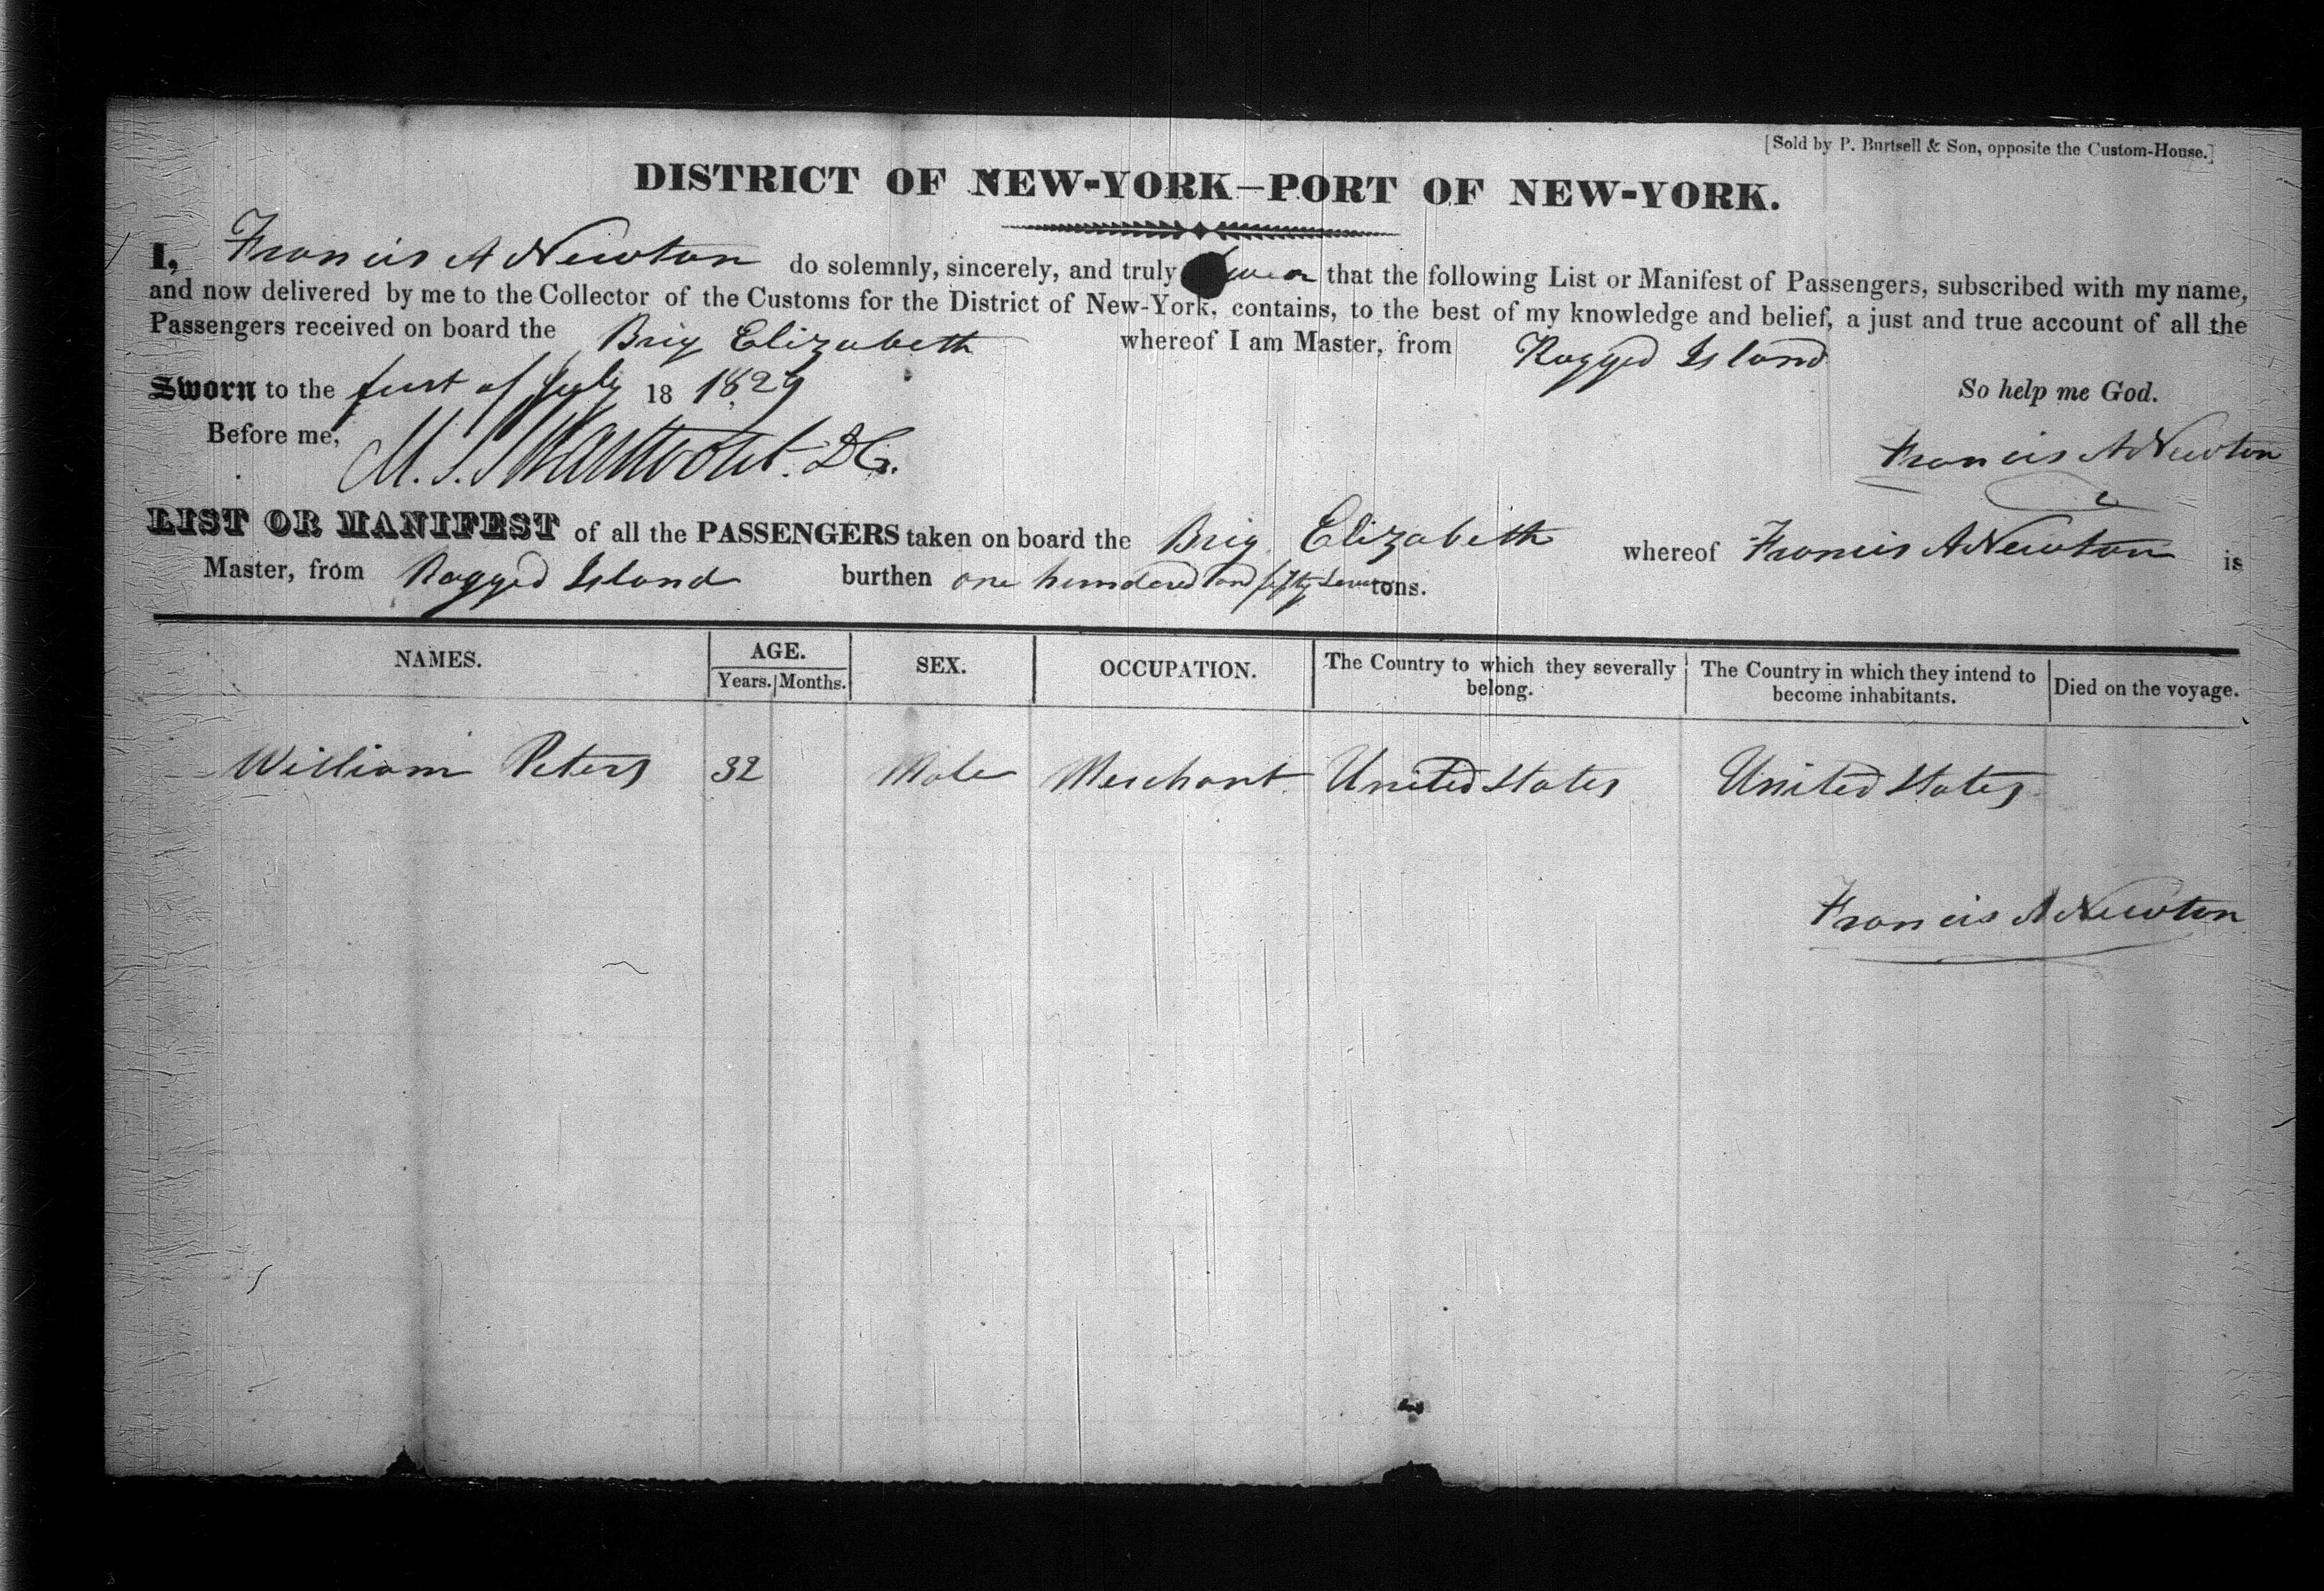 [Sold by P. Burtsell & Son, opposite the Custom-House.]
DISTRICT OF NEW-YORK—PORT OF NEW-YORK.
I, Francis A Newton do solemnly, sincerely, and truly swear that the following List or Manifest of Passengers, subscribed with my name,
and now delivered by me to the Collector of the Customs for the District of New-York, contains, to the best of my knowledge and belief, a just and true account of all the
Passengers received on board the Brig Elizabeth whereof I am Master, from Ragged Island
Sworn to the first of July 18 1829 So help me God.
Before me, M. S. Swartwout. DC. Francis A Newton
LIST OR MANIFEST of all the PASSENGERS taken on board the Brig Elizabeth whereof Francis A Newton is
Master, from Ragged Island burthen one hundered and fifty seven tons.
NAMES. AGE. SEX. OCCUPATION. The Country to which they severally belong. The Country in which they intend to become inhabitants. Died on the voyage.
Years. Months.
William Peters 32 Male Merchant United States United States
Francis A Newton